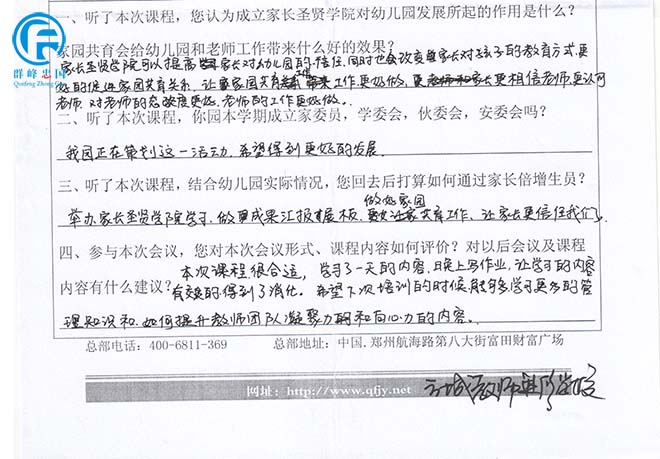 一、听了本次课程，您认为成立家长圣贤学院对幼儿园发展所起的作用是什么？
家园共育会给幼儿园和老师工作带来什么好的效果？
家长圣贤学院可以提高家长对幼儿园的信任，同时也会改变家长对孩子的教育方式，更
好的促进家园共育关系，让家园共育工作更好做，家长更相信老师，更认可
老师，对老师的态度更好，老师的工作更好做。
二、听了本次课程，你园本学期成立家委员，学委会，伙委会，安委会吗？
我园正在策划这一活动，希望得到更好的发展。
三、听了本次课程，结合幼儿园实际情况，您回去后打算如何通过家长倍增生员？
做好家园
举办家长圣贤学院学习，做成果汇报展板，共育工作，让家长更信任我们。
四、参与本次会议，您对本次会议形式、课程内容如何评价？对以后会议及课程
内容有什么建议？
本次课程很合适，学习了一天的内容，晚上写作业，让学习的内容
有效的得到了消化。希望下次培训的时候，能够多学习更多的管
理知识和如何提升教师团队凝聚力和向心力的内容。
总部电话：400-6811-369 总部地址：中国.郑州航海路第八大街富田财富广场
网址：http://www.qfjy.net
教师进修学校
群峰忠国
Qunfeng Zhong